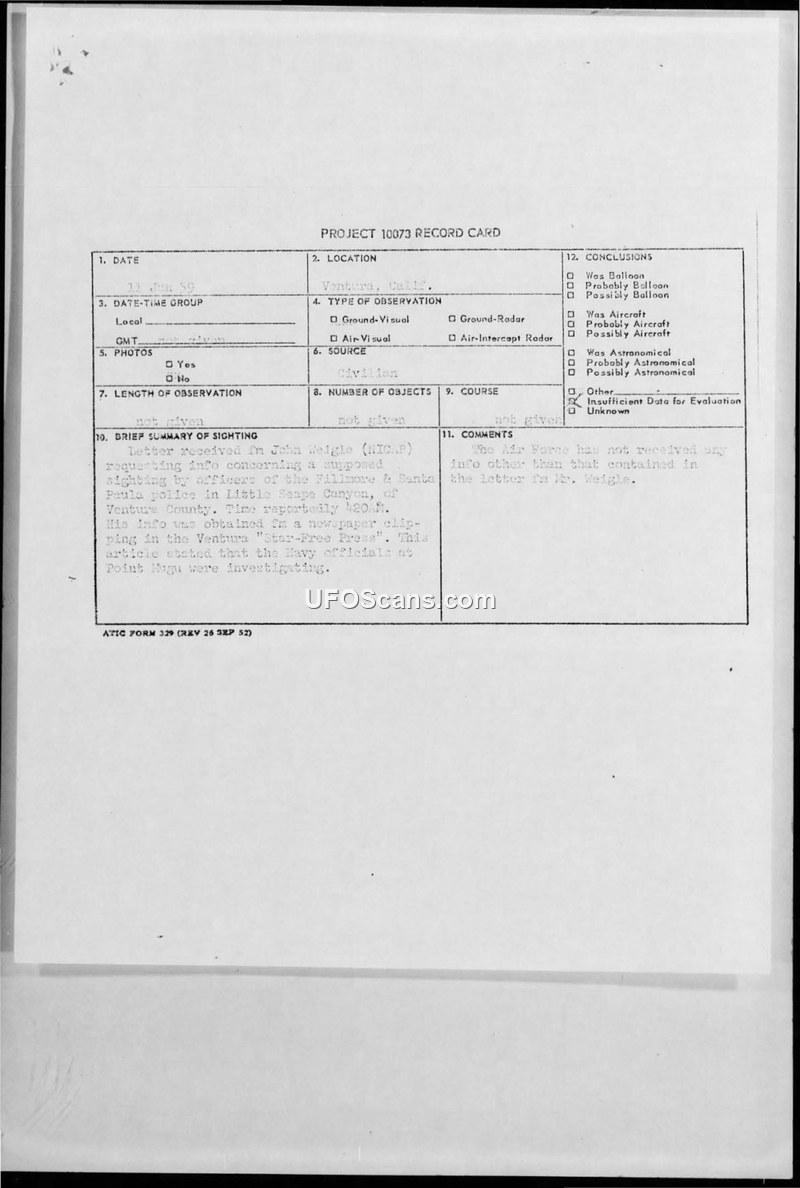 PROJECT 10073 RECORD CARD
1. DATE
59
2. LOCATION
Ventura, Calif.
3. DATE-TIME GROUP
Local
GMT not given
4. TYPE OF OBSERVATION
☐ Ground-Visual ☐ Ground-Radar
☐ Air-Visual ☐ Air-Intercept Radar
5. PHOTOS
☐ Yes
☐ No
6. SOURCE
Civilian
7. LENGTH OF OBSERVATION
not given
8. NUMBER OF OBJECTS
not given
9. COURSE
not given
10. BRIEF SUMMARY OF SIGHTING
Letter received fm John Weigle (NICAP)
requesting info concerning a supposed
sighting by officers of the Fillmore & Santa
Paula police in Little Sespe Canyon, of
Ventura County. Time reportedly
His info was obtained fm a newspaper clip-
ping in the Ventura "Star-Free Press". This
article stated that the Navy officials at
Point Mugu were investigating.
11. COMMENTS
The Air Force has not received any
info other than that contained in
the letter fm Mr. Weigle.
12. CONCLUSIONS
☐ Was Balloon
☐ Probably Balloon
☐ Possibly Balloon
☐ Was Aircraft
☐ Probably Aircraft
☐ Possibly Aircraft
☐ Was Astronomical
☐ Probably Astronomical
☐ Possibly Astronomical
☐ Other
☒ Insufficient Data for Evaluation
☐ Unknown
ATIC FORM 329 (REV 26 SEP 52)
UFOScans.com